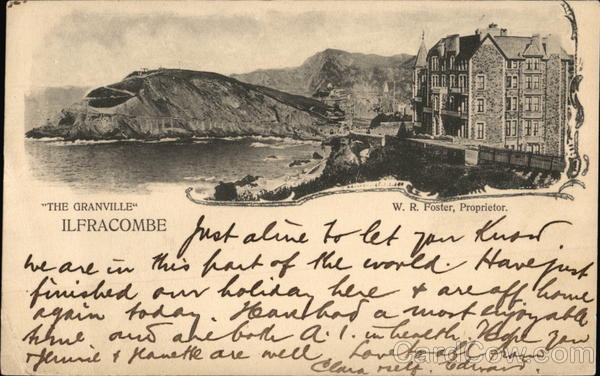 "THE GRANVILLE"
ILFRACOMBE
W. R. Foster, Proprietor.
Just a line to let you know
we are in this part of the world. Have just
finished our holiday here & are off home
again today. Have had a most enjoyable
time and are both A.1. in health. Hope you
& Jennie & are well. Love to all from
Clara & self. Edward.
CardCow.com